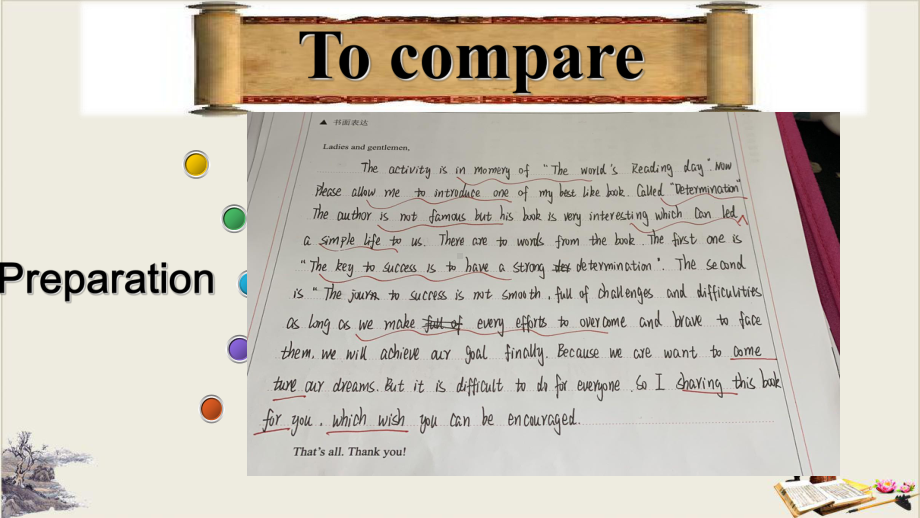 To compare
Preparation
▲ 书面表达
Ladies and gentlemen,
The activity is in momery of "The world's Reading day". Now
Please allow me to introduce one of my best like book. Called "Determination"
The author is not famous but his book is very interesting which can led
a simple life to us. There are to words from the book. The first one is
"The key to success is to have a strong determination". The second
is "The journ to success is not smooth, full of challenges and difficulities
as long as we make full of every efforts to overcome and brave to face
them, we will achieve our goal finally. Because we are want to come
ture our dreams. But it is difficult to do for everyone. So I sharing this book
for you, which wish you can be encouraged.
That's all. Thank you!